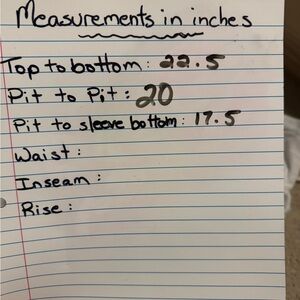 Measurements in inches
Top to bottom: 22.5
Pit to Pit: 20
Pit to sleeve bottom: 17.5
Waist:
Inseam:
Rise: